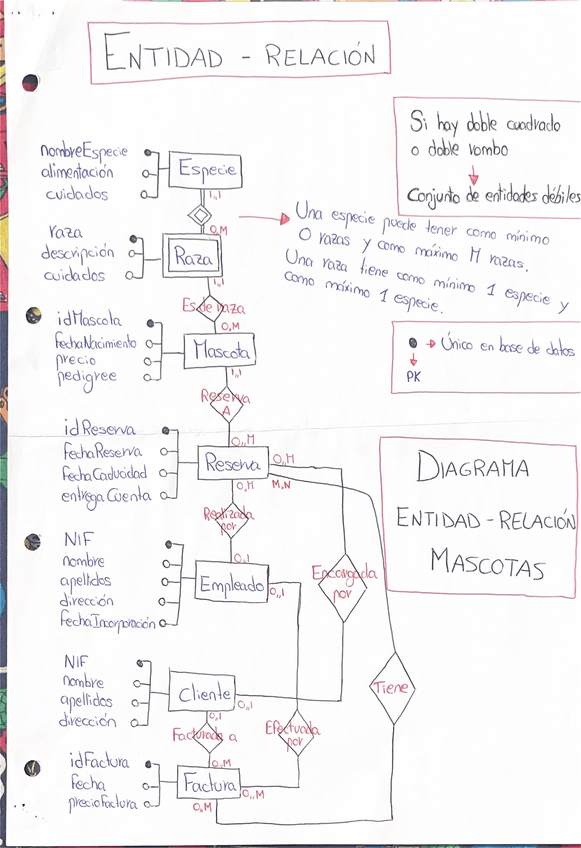 ENTIDAD - RELACIÓN
Si hay doble cuadrado
o doble rombo
Conjunto de entidades débiles
nombreEspecie
alimentación
cuidados
Especie
1,,1
0,M
Una especie puede tener como mínimo
0 razas y como máximo M razas.
Una raza tiene como mínimo 1 especie y
como máximo 1 especie.
raza
descripción
cuidados
Raza
1,,1
Es de raza
0,M
idMascota
fechaNacimiento
precio
pedigree
Mascota
1,,1
Único en base de datos
PK
Reserva
A
0,,M
idReserva
fechaReserva
fechaCaducidad
entregaCuenta
Reserva
0,,M
0,M
M,N
DIAGRAMA
ENTIDAD - RELACIÓN
MASCOTAS
Realizada
por
0,,1
NIF
nombre
apellidos
dirección
fechaIncorporación
Empleado
0,,1
Encargada
por
NIF
nombre
apellidos
dirección
Cliente
0,,1
0,,1
Tiene
Facturada a
Efectuada
por
0,,M
idFactura
fecha
precioFactura
Factura
0,,M
0,,M